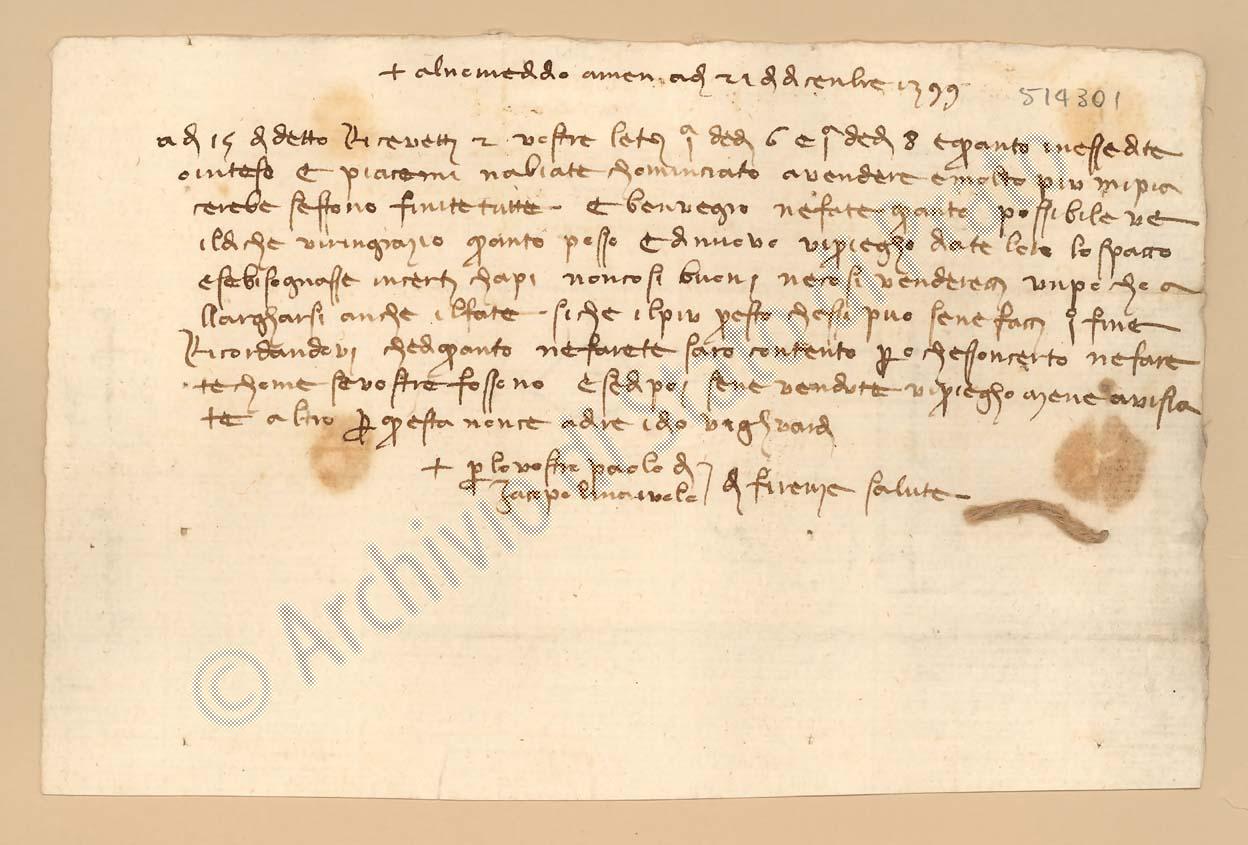 + al nome ddo amen adj 21 dj dicenbre 1399
514301
adj 15 dj detto Ricevetti 2 vostre lett. j dedj 6 e j dedj 8 e quanto in esse dite
o inteso e piacemi n abiate chominciato a vendere e molto piu mi pia
cerebe se ssono finite tutte e ben vegio ne fate quanto possibile ve
il di che vi ringrazio quanto posso e di nuovo vi priegho diate loro lo spaccio
e se bisognasse in certi chapi non cosi buoni ne cosi venderecci un pocho a
llargharsi anche il fate siche il piu presto che ssi puo se ne facci j fine
Ricordandovi che di quanto ne farete saro contento pero che sson certo ne fare
te chome se vostre fossono e se dipoi se ne vendute vi priegho me ne avisia
te altro per questa non ce a dire idio vi ghuardi
+ per lo vostro paolo di
Jacopo di firenze salute
© Archivio di Stato di